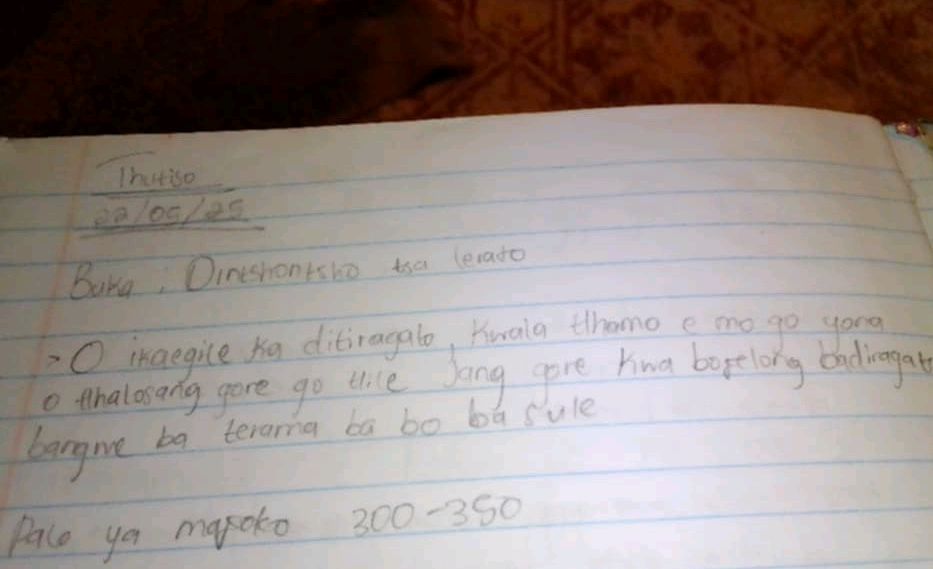 Thutiso
22/05/25
Buka : Dintshontsho tsa lerato
> O ikaegile ka ditiragalo, Kwala tlhamo e mo go yona
o tlhalosang gore go tlile jang gore kwa bofelong badiragat
bangwe ba terama ba bo ba sule
Palo ya mafoko 300-350